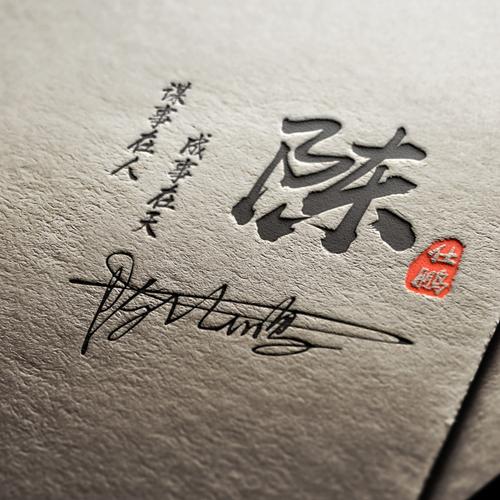 谋事在人
成事在天
陈
仕鹏